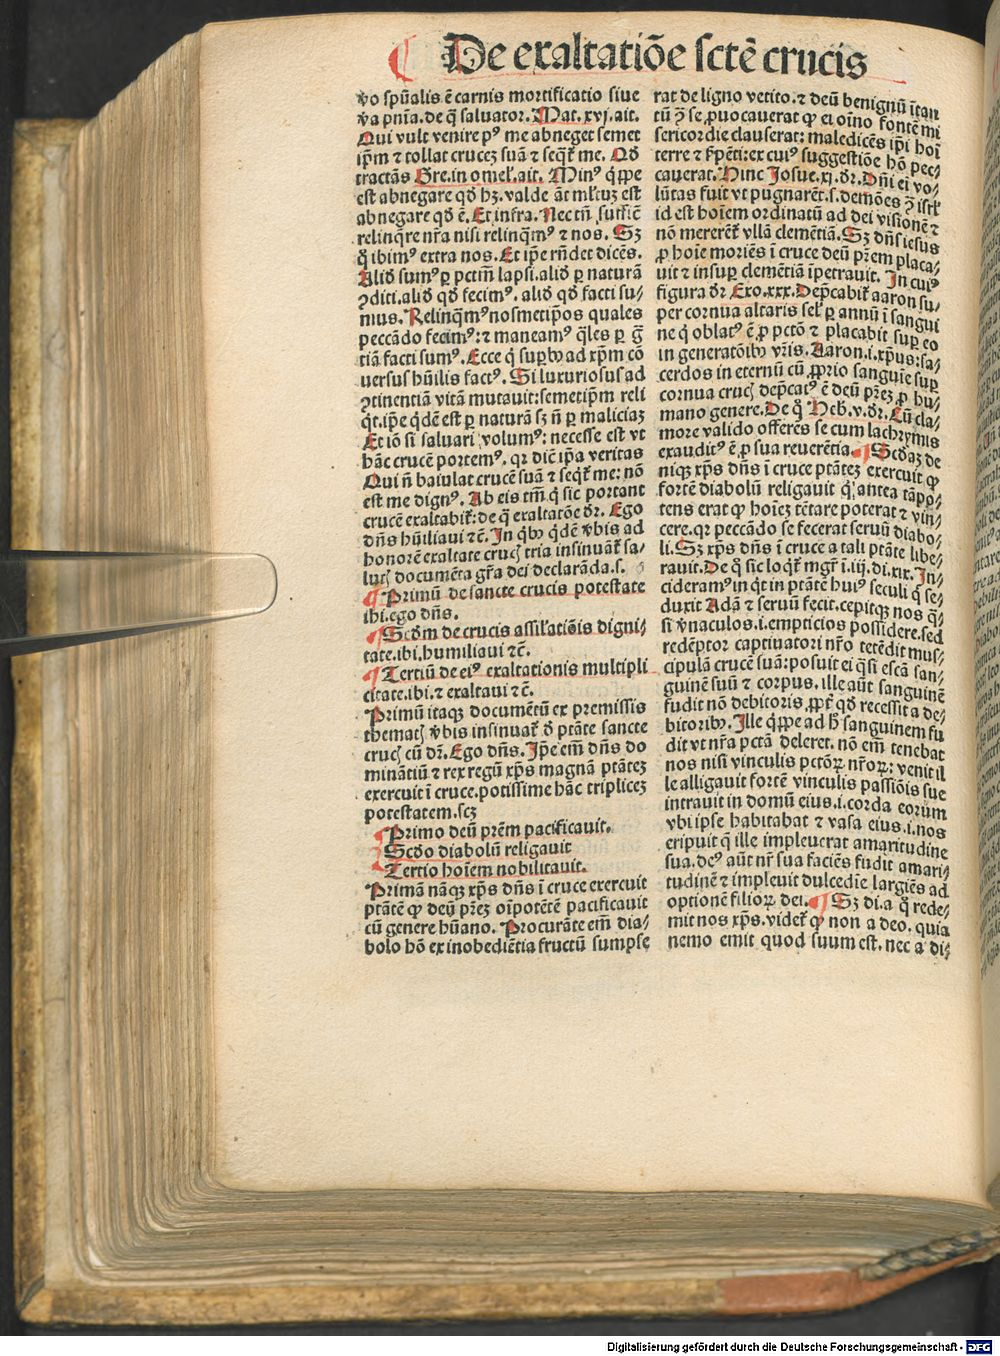 De exaltatiõe sctẽ crucis
vo spũalis ẽ carnis mortificatio siue
v̾a pnĩa. de q̃ saluator. Mat. xvj. ait.
Qui vult venire pꝰ me abneget semet
ip̃m ⁊ tollat crucez suã ⁊ seqͭ me. Qđ
tractãs Gre. in omeł. ait. Minꝰ q̃ppe
est abnegare qđ hꝫ. valde ãt młtuz est
abnegare qđ ẽ. Et infra. Nec tñ suffic̃
relinq̃re nr̃a nisi relinqmꝰ ⁊ nos. Sꝫ
q̊ ibimꝰ extra nos. Et ip̃e rñdet dicẽs.
Aliđ sumꝰ ꝑ pctm̃ lapsi. aliđ ꝑ naturã
ꝯditi. aliđ qđ fecimꝰ. aliđ qđ facti su⸗
mus. Relinqmꝰ nosmetip̃os quales
peccãdo fecimꝰ: ⁊ maneamꝰ q̃les ꝑ g̃
tiã facti sumꝰ. Ecce q̃ suꝑbꝰ ad xp̃m cõ
uersus hũilis factꝰ. Si luxuriosus ad
ꝯtinentiã vitã mutauit: semetip̃m reli
qͭ. ip̃e q̃dẽ est ꝑ naturã sꝫ ñ ꝑ maliciaz
Et iõ si saluari volumꝰ: necesse est vt
hãc crucẽ portemꝰ. qꝛ diẽ ip̃a veritas
Qui ñ baiulat crucẽ suã ⁊ seqͭ me: nõ
est me dignꝰ. Ab eis tm̃ q̃ sic portant
crucẽ exaltabiť: de q̃ exaltatõe đꝛ. Ego
dñs hũiliaui ⁊c̃. In qͥbꝰ q̃dẽ v̾bis ad
honorẽ exaltate crucꝭ tria insinuãť sa⸗
lutꝭ documẽta gr̃a dei declarãda. s.
¶ Primũ de sancte crucis potestate
ibi. ego dñs.
¶ Scđm de crucis assilatiõis digni⸗
tate. ibi. humiliaui ⁊c̃.
¶ Tertiũ de eiꝰ exaltationis multipli
citate. ibi. ⁊ exaltaui ⁊c̃.
Primũ itaqꝫ documẽtũ ex premissis
thematꝭ v̾bis insinuať đ ptãte sancte
crucꝭ cũ đꝛ. Ego dñs. Ip̃e em̃ dñs do
minãtiũ ⁊ rex regũ xp̃s magnã ptãtez
exercuit ĩ cruce. potissime hãc triplicez
potestatem. scꝫ
¶ Primo deũ prẽm pacificauit.
Scđo diabolũ religauit
Tertio hoĩem nobilitauit.
Primã nãqꝫ xp̃s dñs ĩ cruce exercuit
ptãtẽ ꝙ deũ prẽz oĩpotẽtẽ pacificauit
cũ genere hũano. Procurãte em̃ dia⸗
bolo hõ ex inobediẽtia fructũ sumpse
rat de ligno vetito. ⁊ deũ benignũ ĩtan
tũ ꝯ̃ se ꝓuocauerat ꝙ ei oĩno fontẽ mi
sericordie clauserat: maledicẽs ip̃i hoĩ
terre ⁊ ẜpẽti: ex cuiꝰ suggestiõe hõ pec⸗
cauerat. Hinc Josue. xj. đꝛ. Dñi ei vo⸗
lũtas fuit vt pugnarẽt. s. demões ꝯ̃ isrł
id est hoĩem ordinatũ ad dei visionẽ ⁊
nõ mererẽť vllã clemẽtiã. Sꝫ dñs iesus
ꝓ hoĩe moriẽs ĩ cruce deũ prẽm placa⸗
uit ⁊ insuꝑ clemẽtiã ĩpetrauit. In cuiꝰ
figura đꝛ Exo. xxx. Dep̃cabiť aaron su⸗
per cornua altaris seł ꝑ annũ ĩ sangui
ne q̃ oblatꝰ ẽ ꝓ pctõ ⁊ placabit suꝑ eo
in generatõibꝰ vr̃is. Aaron. i. xp̃us: sa⸗
cerdos in eternũ cũ ꝓprio sanguĩe suꝑ
cornua crucꝭ dep̃catꝰ ẽ deũ prẽz ꝓ hu⸗
mano genere. De q̊ Heb. v. đꝛ. Cũ cla⸗
more valido offerẽs se cum lachrymis
exauditꝰ ẽ ꝓ sua reuerẽtia. ¶ Scđaz de
niqꝫ xp̃s dñs ĩ cruce ptãtez exercuit ꝙ
fortẽ diabolũ religauit qͥ antea tãpo⸗
tens erat ꝙ hoĩez tẽtare poterat ⁊ vin⸗
cere. qꝛ peccãdo se fecerat seruũ diabo⸗
li. Sꝫ xp̃s dñs ĩ cruce a tali ptãte libe⸗
rauit. De q̊ sic loqͭ mgr̃ ĩ. iij. di. xix. In⸗
cideramꝰ in qͭ in ptãtẽ huiꝰ seculi q̃ se⸗
duxit Adã ⁊ seruũ fecit. cepitqꝫ nos q̃⸗
si v̾naculos. i. empticios possidere. sed
redẽptor captiuatori nr̃o tetẽdit mus⸗
cipulã crucẽ suã: posuit ei q̃si escã san⸗
guinẽ suũ ⁊ corpus. ille aũt sanguinẽ
fudit nõ debitoris, ꝓpť qđ recessit a de⸗
bitoribꝰ. Ille q̃ppe ad h̃ sanguinem fu
dit vt nr̃a pctã deleret. nõ em̃ tenebat
nos nisi vinculis pctõꝝ nr̃oꝝ: venit il
le alligauit fortẽ vinculis passiõis sue
intrauit in domũ eius. i. corda eorum
vbi ipse habitabat ⁊ vasa eius. i. nos
eripuit q̃ ille impleuerat amaritudine
sua. deꝰ aũt nr̃ sua faciẽs fudit amari⸗
tudinẽ ⁊ impleuit dulcedĩe largiẽs ad
optionẽ filioꝝ dei. ¶ Sꝫ di. a q̊ rede⸗
mit nos xp̃s. videť ꝙ non a deo. quia
nemo emit quod suum est. nec a di⸗
Digitalisierung gefördert durch die Deutsche Forschungsgemeinschaft - DFG